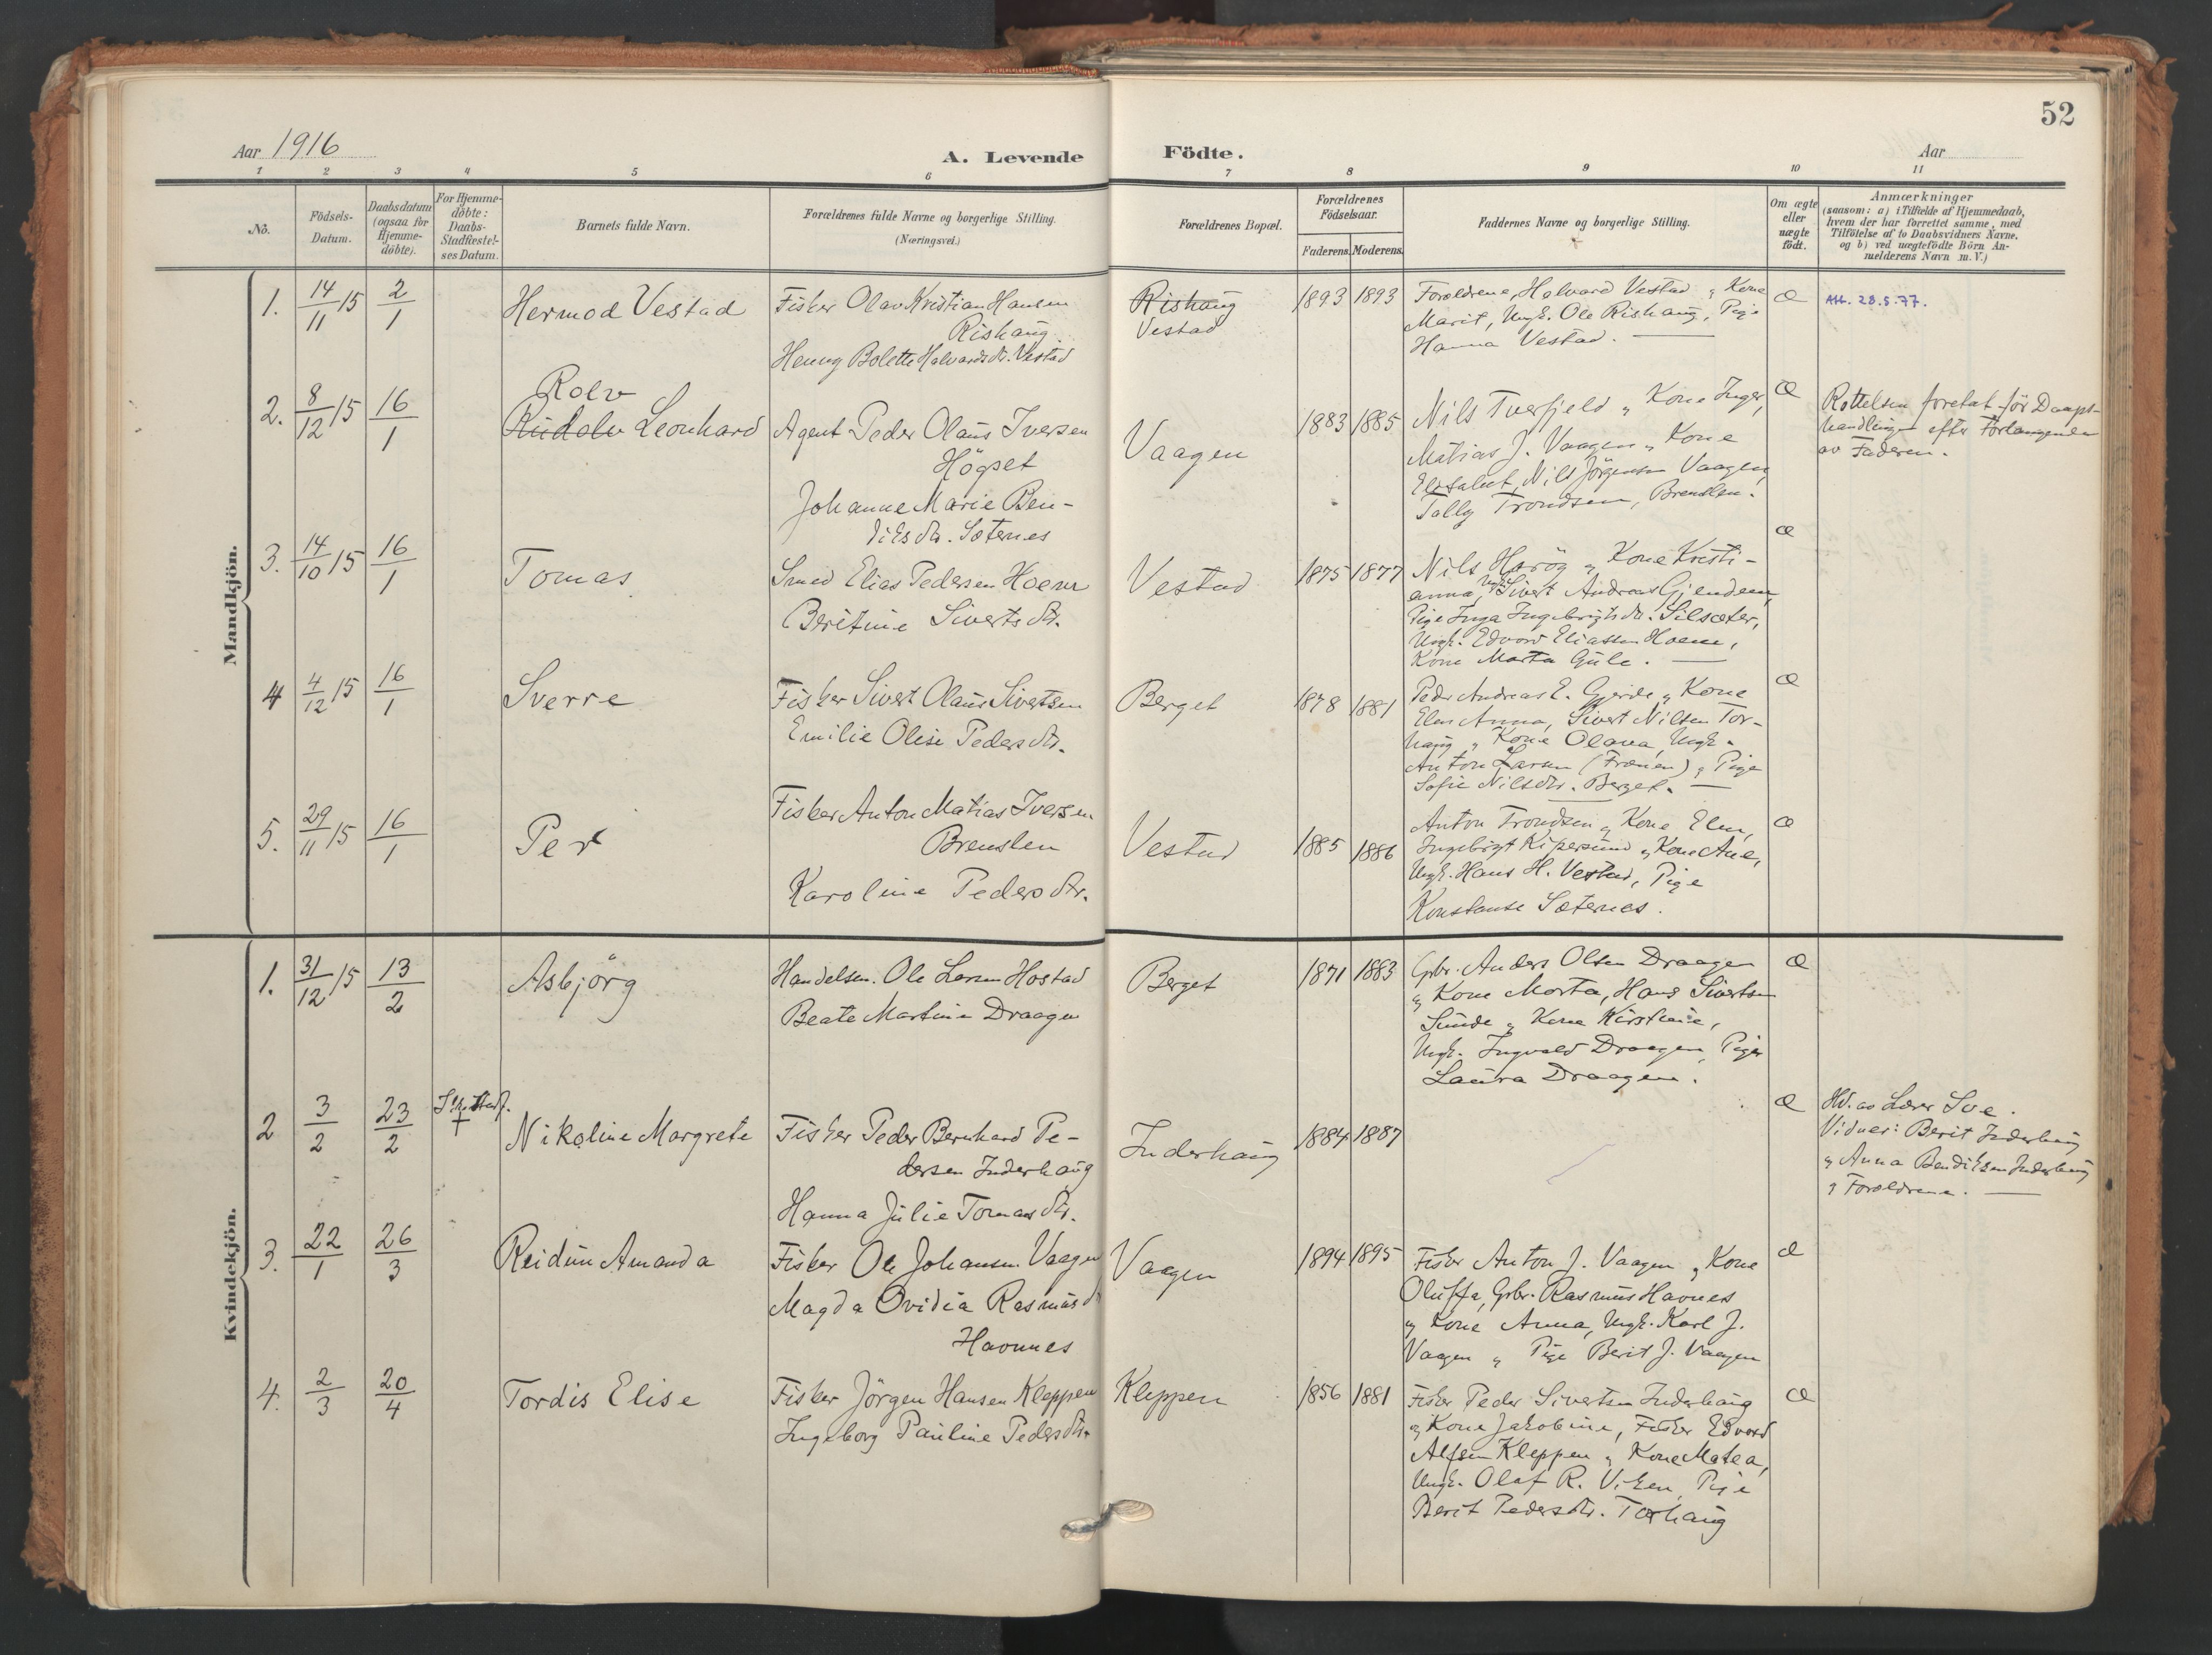 52
Aar 1916
A. Levende Födte.
Aar
1 2 3 4 5 6 7 8 9 10 11
No.
Födsels-
Datum.
Daabsdatum
(ogsaa for
Hjemme-
döbte).
For Hjemme-
döbte:
Daabs-
Stadfæstel-
ses Datum.
Barnets fulde Navn.
Forældrenes fulde Navne og borgerlige Stilling.
(Næringsvei.)
Forældrenes Bopæl.
Forældrenes
Födselsaar.
Faderens. Moderens.
Faddernes Navne og borgerlige Stilling.
Om ægte
eller
uægte
födt.
Anmærkninger
(saasom: a) i Tilfælde af Hjemmedaab,
hvem der har forrettet samme, med
Tilföielse af to Daabsvidners Navne.
og b) ved uægtefödte Börn An-
melderens Navn m. V.)
Mandkjön.
1. 14/11 15 2/1 Hermod Vestad
Fisker Olav Kristian Hansen
Rishaug
Henny Bolette Halvardsdtr. Vestad
Rishaug
Vestad
1893 1893
Forældrene, Halvard Vestad og Kone
Marit, Ungk. Ole Rishaug, Pige
Hanna Vestad.
Æ
Att. 28.5.77.
2. 8/12 15 16/1
Rolv
Rudolv Leonhard
Agent Peder Olaus Iversen
Högset
Johanne Marie Ben-
diksdtr. Sæternes
Vaagen
1883 1885
Nils Tverfjeld og Kone Inger,
Matias J. Vaagen og Kone
Elisabet, Nils Jörgensen Vaagen,
Tally Trondsen, Brenslen.
Æ
Rettelsen foretat för Daaps-
handlingen efter Forlangende
av Faderen.
3. 14/10 15 16/1 Tomas
Smed Elias Pedersen Hoem
Beritine Sivertsdtr.
Vestad
1875 1877
Nils Haröy og Kone Kristi-
anna, Ungk. Sivert Andreas Gjendem,
Pige Inga Ingebrigtsdtr. Silsæter,
Ungk. Edvard Eliassen Hoem,
Kone Marta Gule.
Æ
4 4/12 15 16/1 Sverre
Fisker Sivert Olaus Sivertsen
Emilie Olise Pedersdtr.
Berget
1878 1881
Peder Andreas E. Gjerde og Kone
Elen Anna, Sivert Nilsen Tor-
haug og Kone Olava, Ungk.
Anton Larsen (Frænen) og Pige
Sofie Nilsdtr. Berget.
Æ
5. 29/11 15 16/1 Per
Fisker Anton Matias Iversen
Brenslen
Karoline Pedersdtr.
Vestad
1885 1886
Anton Trondsen og Kone Elen,
Ingebrigt Kipersund og Kone Ane,
Ungk. Hans H. Vestad, Pige
Konstanse Sæternes.
Æ
Kvindekjön.
1. 31/12 15 13/2 Asbjörg
Handelsm. Ole Larsen Hostad
Beate Martine Draagen
Berget
1871 1883
Grbr. Anders Olsen Draagen
og Kone Marta, Hans Sivertsen
Sunde og Kone Kirstine,
Ungk. Ingvald Draagen, Pige
Laura Draagen.
Æ
2 3/2 23/2
†
Nikoline Margrete
Fisker Peder Bernhard Pe-
dersen Inderhaug
Hanna Julie Tomasdtr.
Inderhaug
1884 1887
Æ
Hd. av Lærer Sve.
Vidner: Berit Inderhaug
og Anna Bendiksen Inderhaug
og Forældrene.
3. 22/1 26/3 Reidun Amanda
Fisker Ole Johansen Vaagen
Magda Ovidia Rasmusd
Havnnes
Vaagen
1894 1895
Fisker Anton J. Vaagen og Kone
Oluffa, Grbr. Rasmus Havnes
og Kone Anna, Ungk. Karl J.
Vaagen og Pige Berit J. Vaagen
Æ
4. 2/3 20/4 Tordis Elise
Fisker Jörgen Hansen Kleppen
Ingeborg Pauline Pedersdtr.
Kleppen
1856 1881
Fisker Peder Sivertsen Inderhaug
og Kone Jakobine, Fisker Edvard
Alfsen Kleppen og Kone Matea,
Ungk. Olaf R. Viken, Pige
Berit Pedersdtr. Torhaug
Æ